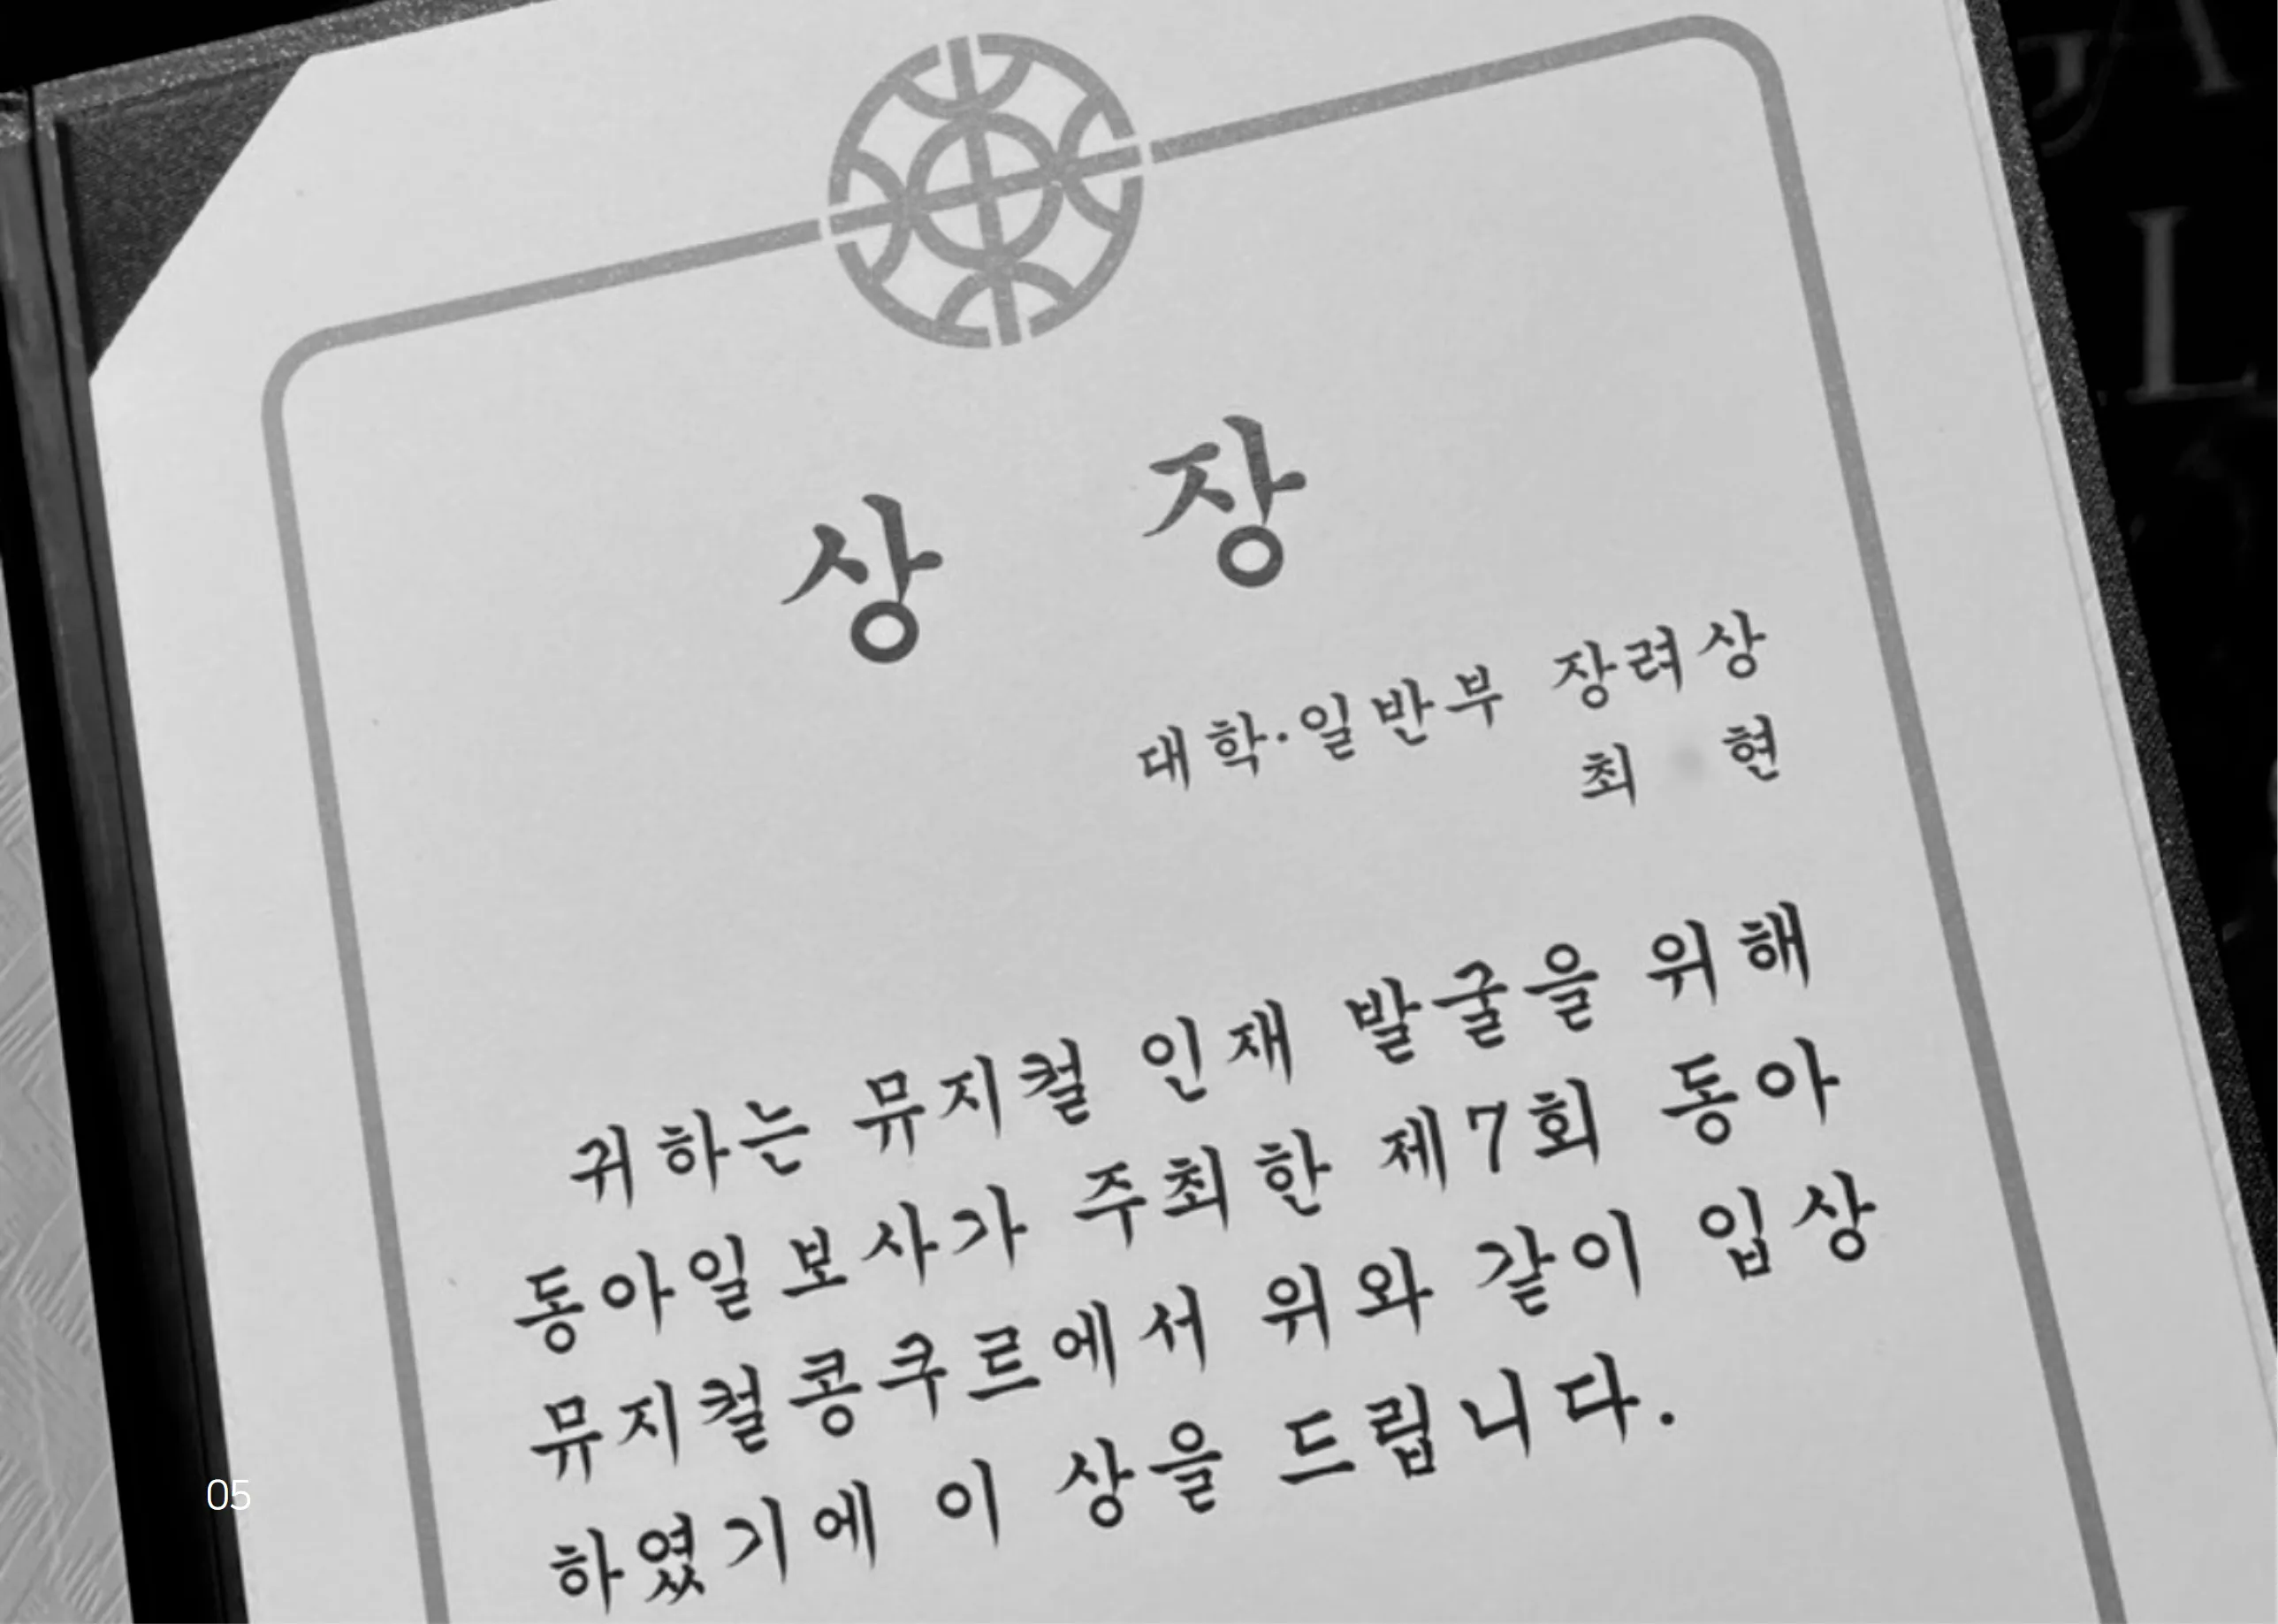 상 장
대학·일반부 장려상
최 현
귀하는 뮤지컬 인재 발굴을 위해
동아일보사가 주최한 제7회 동아
뮤지컬콩쿠르에서 위와 같이 입상
하였기에 이 상을 드립니다.
05
A
L